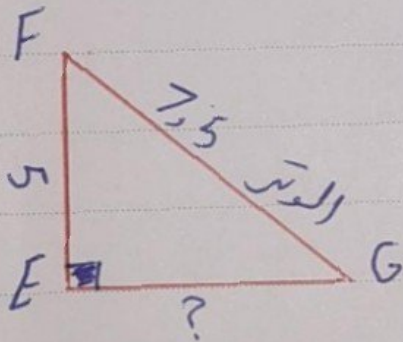 F
7,5
الوتر
5
E
G
?